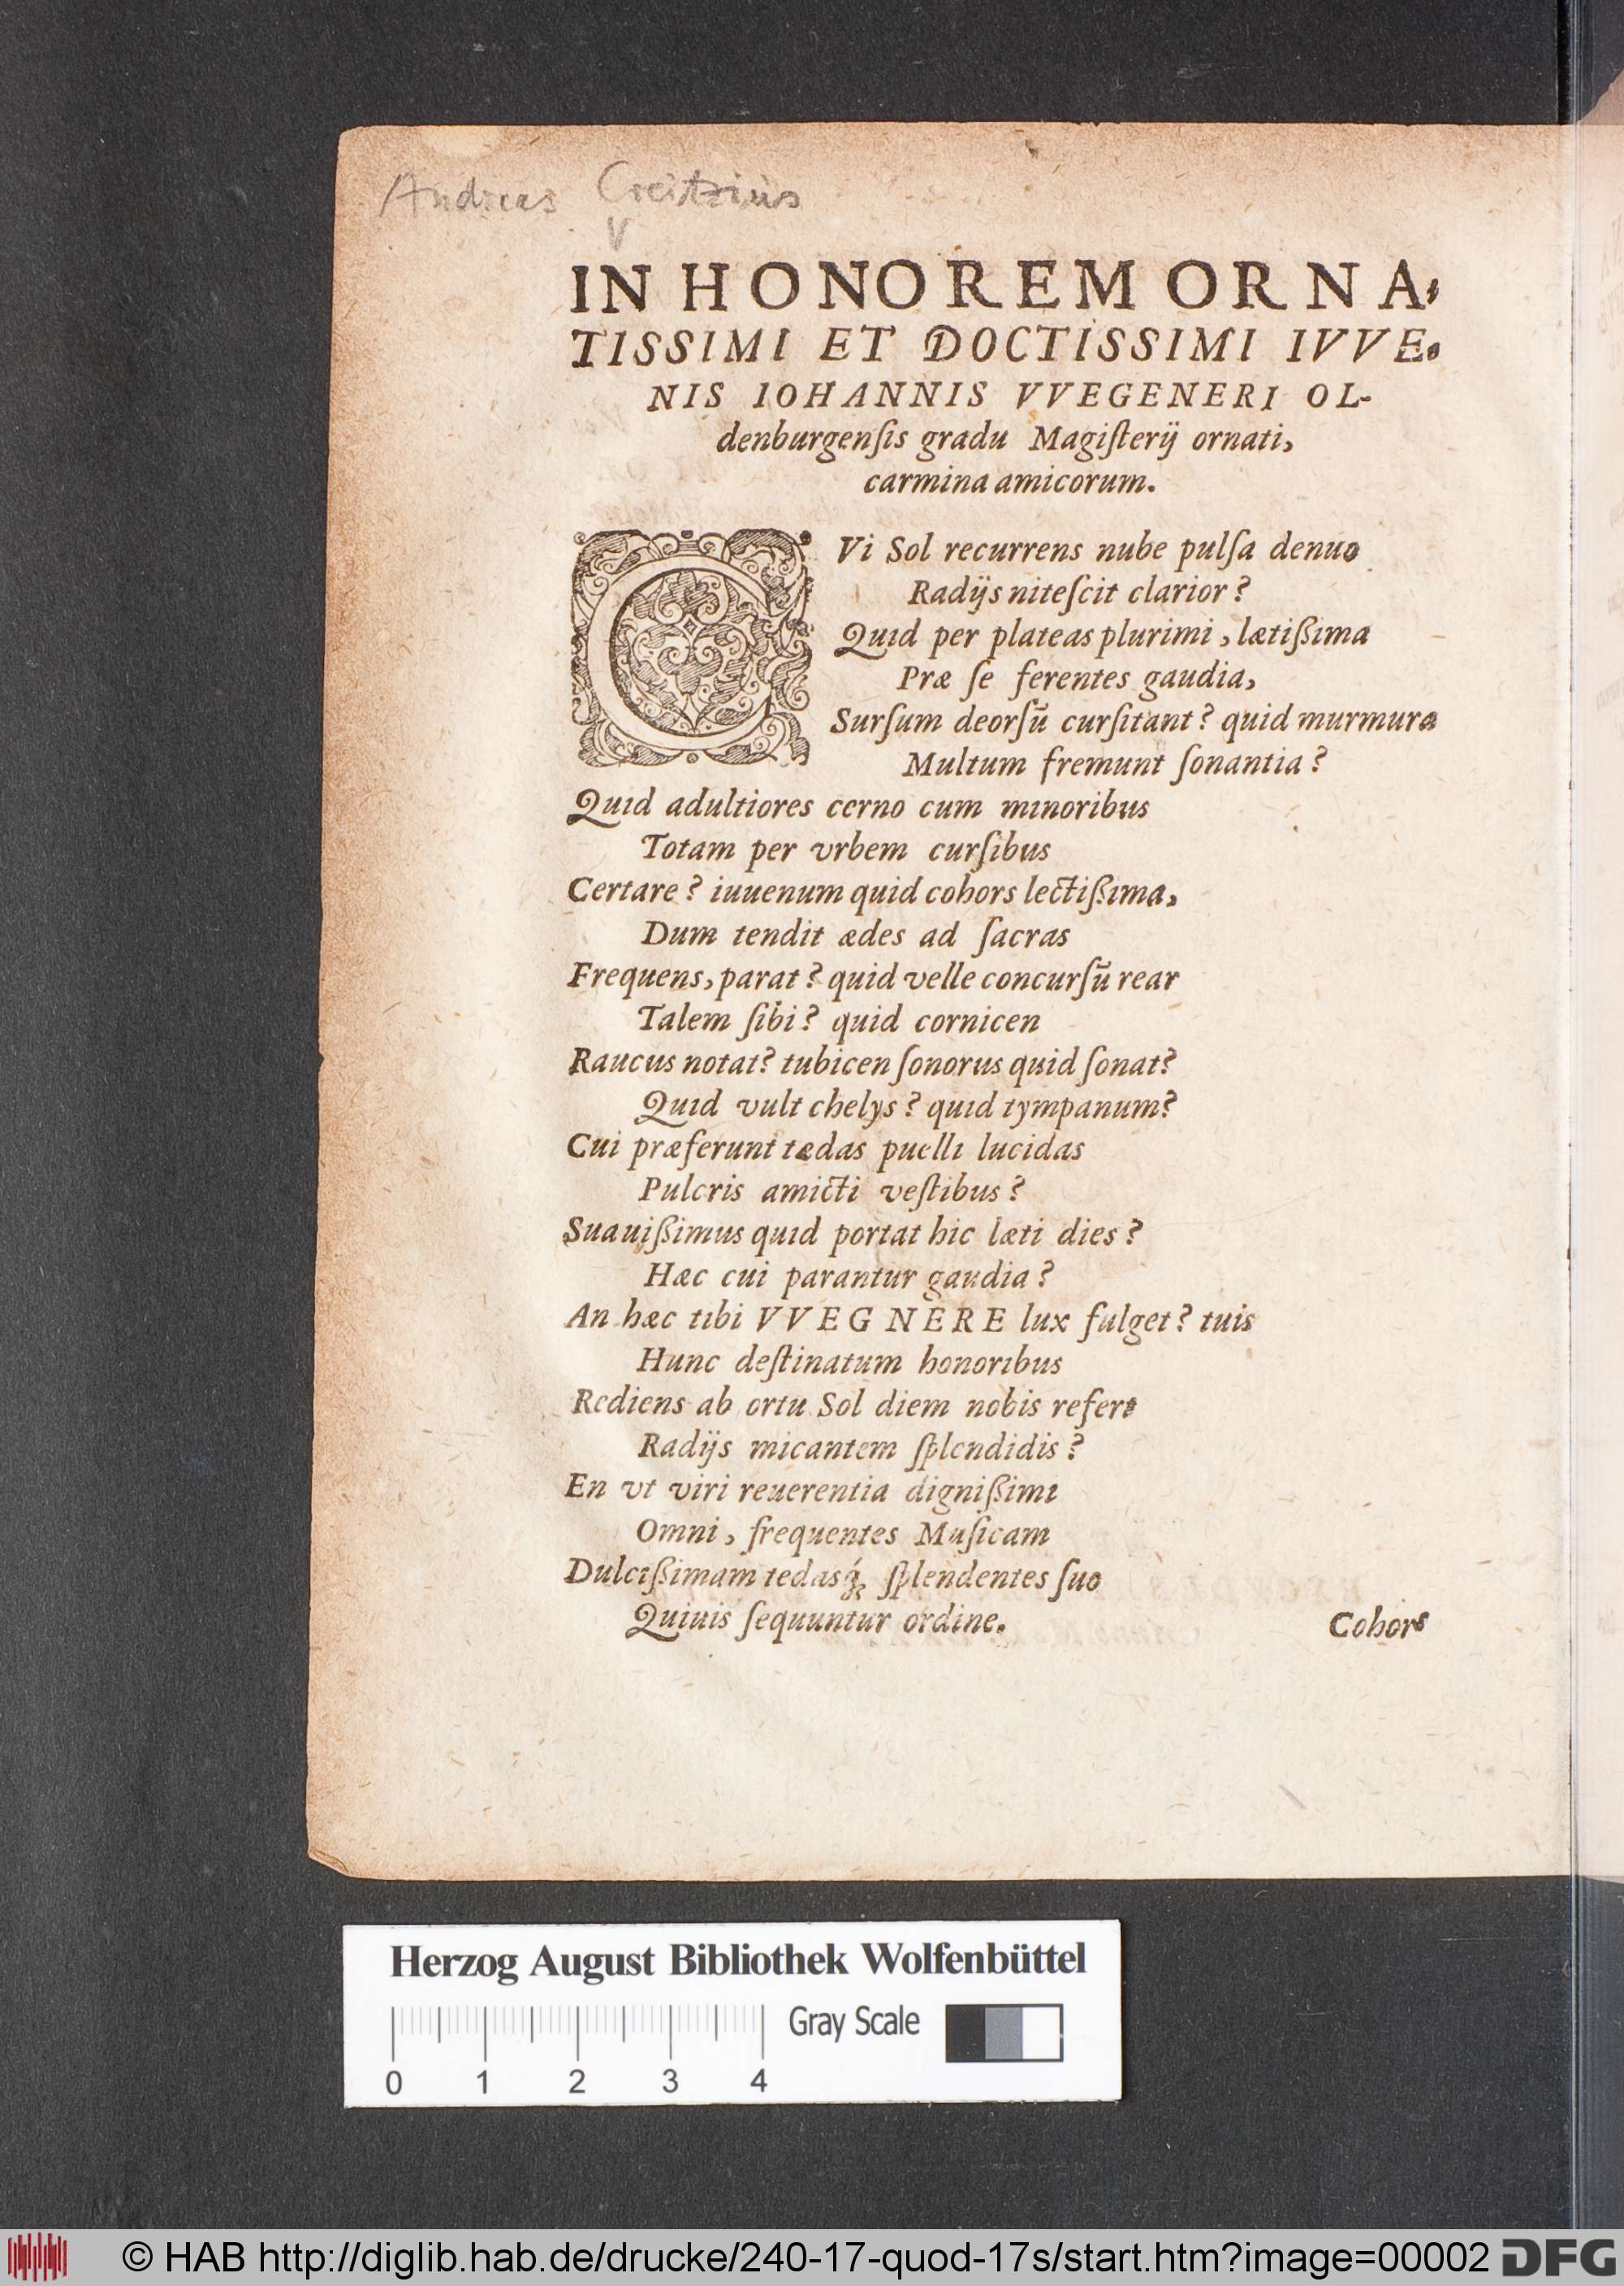 Andreas Creitzius
IN HONOREM ORNA,
TISSIMI ET DOCTISSIMI IVVE.
NIS IOHANNIS VVEGENERI OL-
denburgenſis gradu Magiſterij ornati,
carmina amicorum.
QVi Sol recurrens nube pulſa denuo
Radijs niteſcit clarior?
Quid per plateas plurimi, lætißima
Præ ſe ferentes gaudia,
Surſum deorſū curſitant? quid murmura
Multum fremunt ſonantia?
Quid adultiores cerno cum minoribus
Totam per vrbem curſibus
Certare? iuuenum quid cohors lectißima,
Dum tendit ædes ad ſacras
Frequens, parat? quid velle concurſū rear
Talem ſibi? quid cornicen
Raucus notat? tubicen ſonorus quid ſonat?
Quid vult chelys? quid tympanum?
Cui præferunt tædas puelli lucidas
Pulcris amicti veſtibus?
Suauißimus quid portat hic læti dies?
Hæc cui parantur gaudia?
An hæc tibi VVEGNERE lux fulget? tuis
Hunc deſtinatum honoribus
Rediens ab ortu Sol diem nobis refert
Radijs micantem ſplendidis?
En vt viri reuerentia dignißimi
Omni, frequentes Muſicam
Dulcißimam tedasq́; ſplendentes ſuo
Quiuis ſequuntur ordine.
Cohors
Herzog August Bibliothek Wolfenbüttel
Gray Scale
0 1 2 3 4
© HAB http://diglib.hab.de/drucke/240-17-quod-17s/start.htm?image=00002 DFG